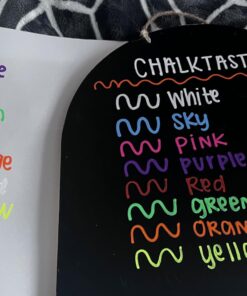 CHALKTAST
White
SKY
PINK
PURPLE
Red
GREEN
ORAN
yello